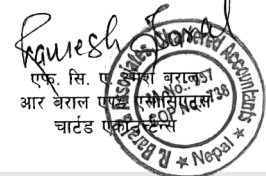 Ramesh Baral
एफ. सि. ए. रमेश बराल
आर बराल एण्ड एसोसिएट्स
चार्टर्ड एकाउन्टेन्स
R. Baral & Associates Chartered Accountants
* Nepal *